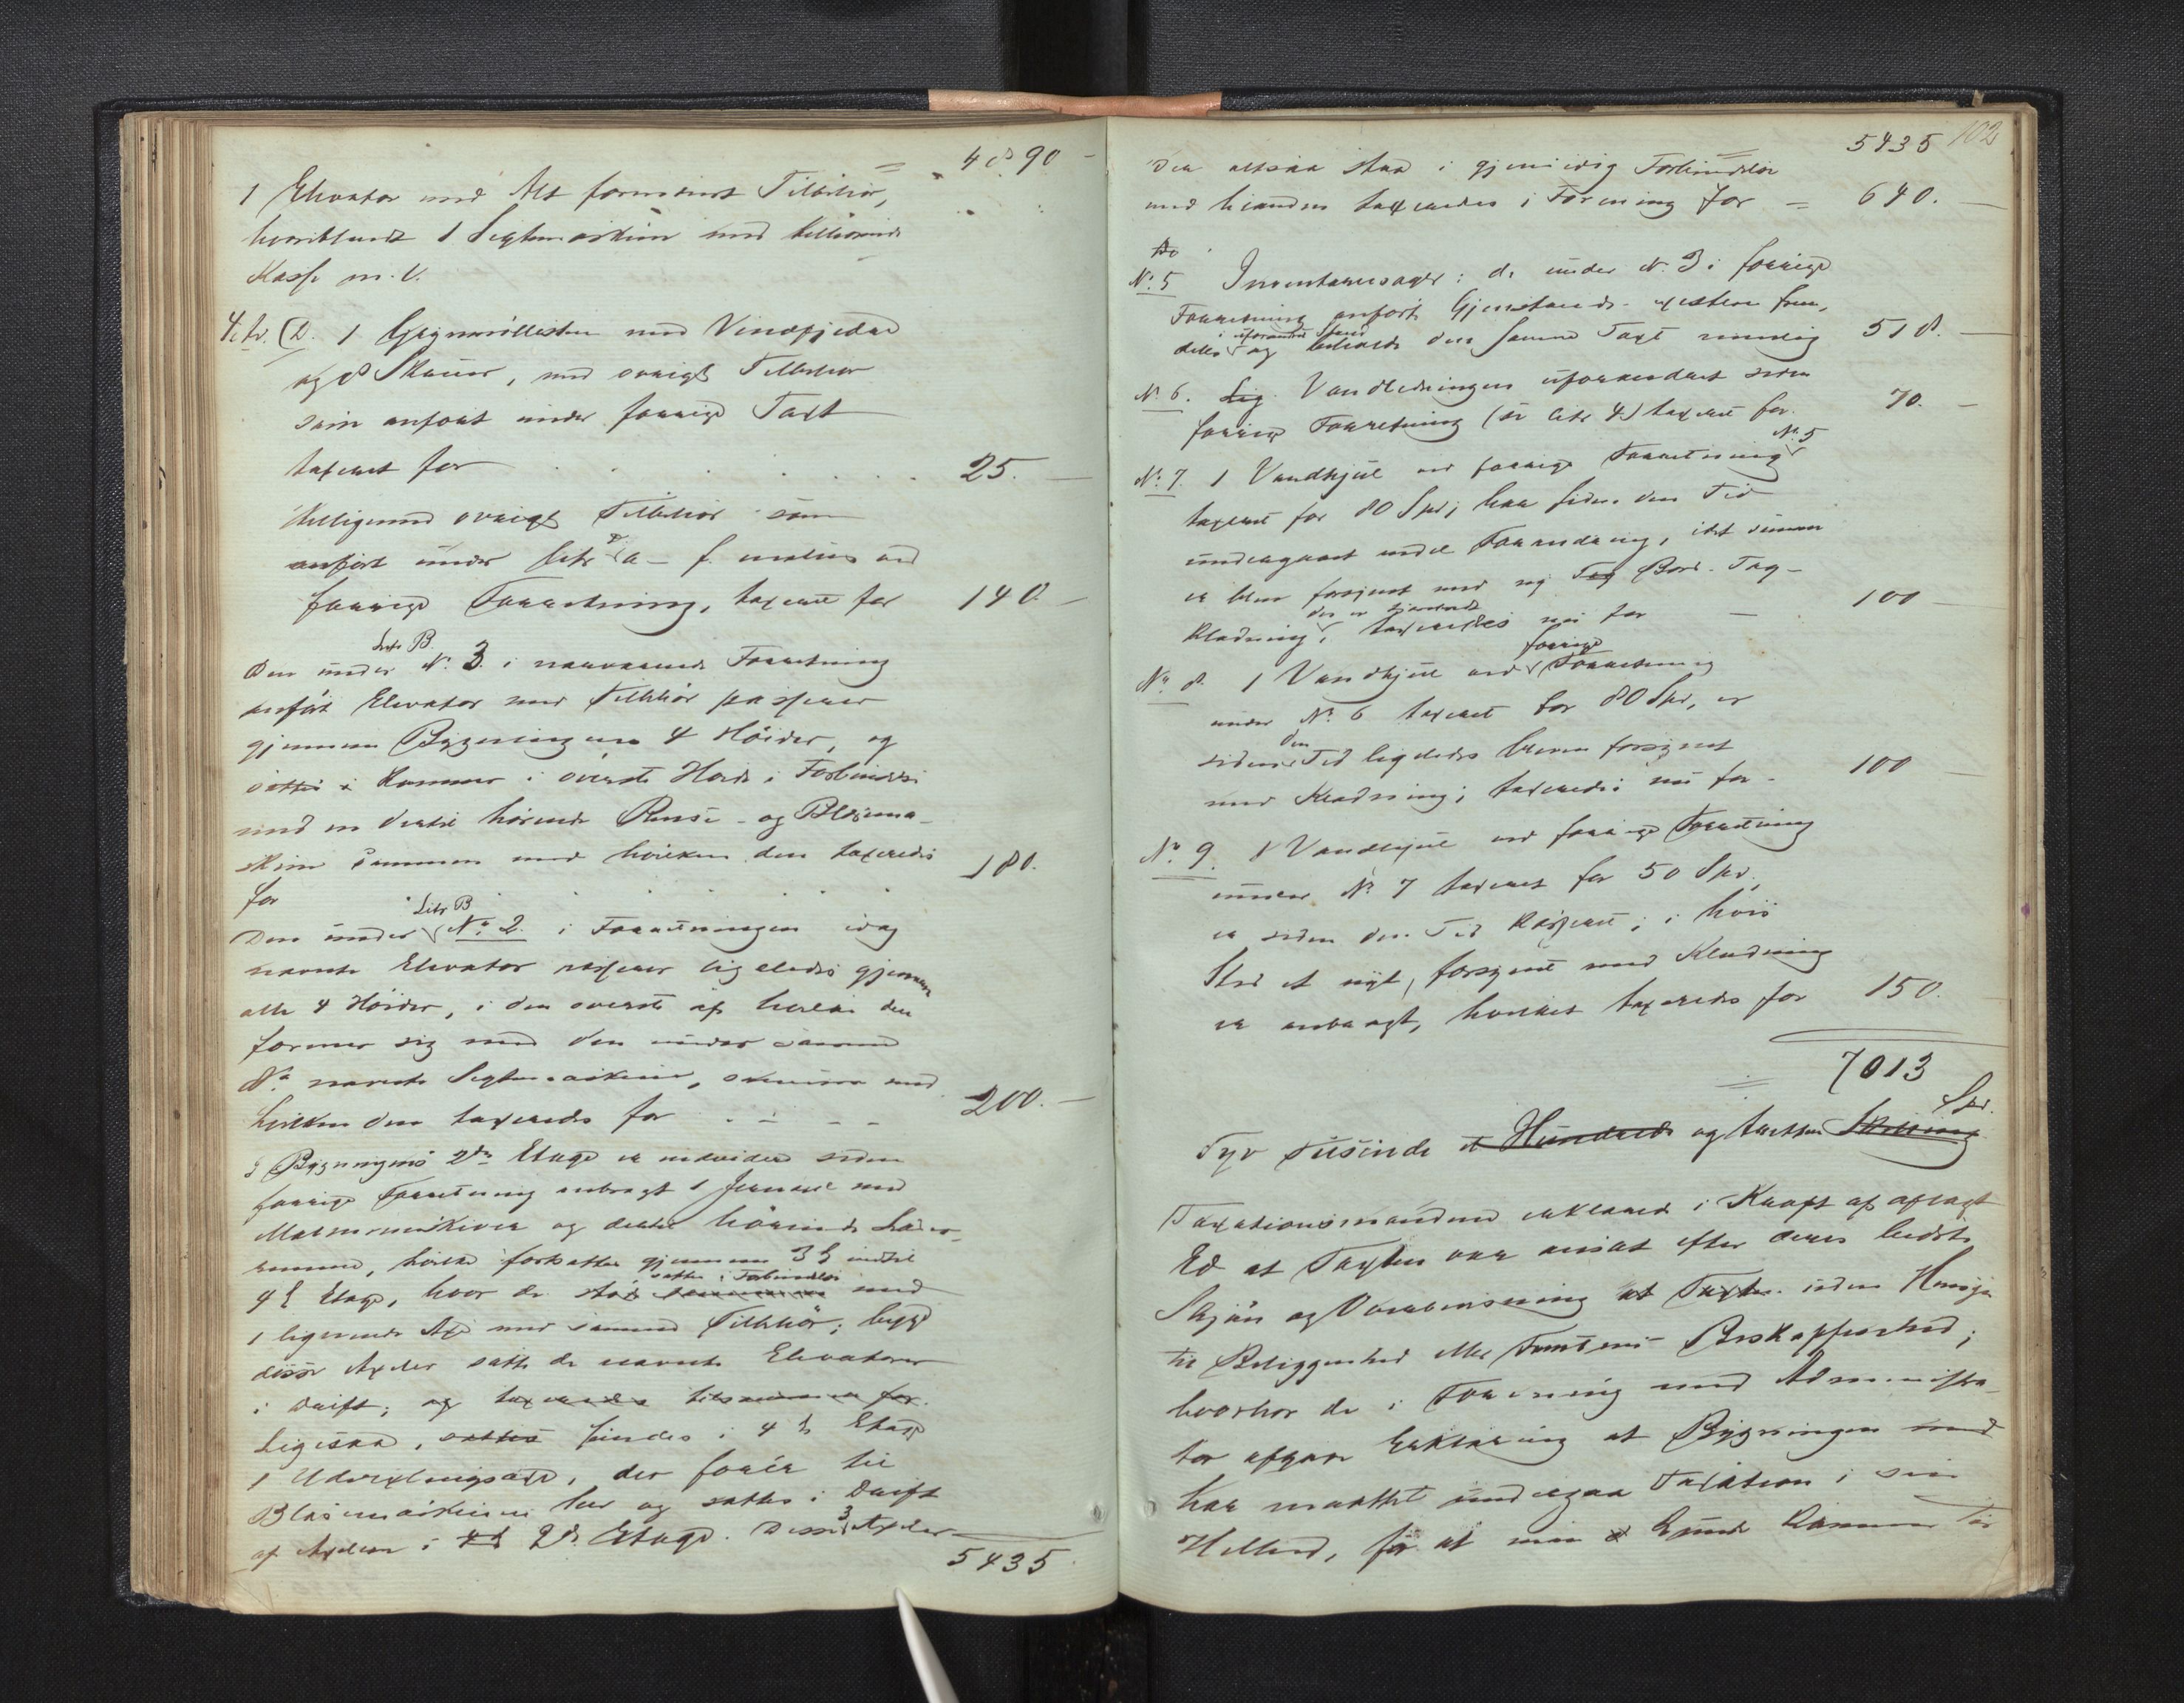 4890
1 Elevator med Alt fornødent Tilbehør,
hvoriblandt 1 Sigtemaskine med tilhørende
Kasse m. V.
Litr. D. 1 med Vindfjedre
og 8 Skruer, med øvrigt Tilbehør
som anført under forrige Taxt
taxeret for 25.
Ligemed øvrigt Tilbehør som
anført under Litr a - f. inclus ved
forrige Forretning, taxeret for 140
Litr B.
Den under No. 3. i nærværende Forretning
anført Elevator med Tilbehør passerer
gjennem Bygningens 4 Høider, og
sættes i øverste Høide i Forbindelse
med en dertil hørende Rense- og Blæsema-
skine sammen med hvilken den taxeredes
for 180.
Litr B
Den under No. 2. i Forretningen idag
nævnte Elevator passerer ligeledes gjennem
alle 4 Høider, i den øverste af hvilke den
forener sig med den under samme
No. nævnte Sigtemaskine, sammen med
hvilken den taxeredes for 200.
I Bygningens 2den Etage er endvidere siden
forrige Forretning anbragt 1 med
og dertil hørende
remme, hvilke fortsætter gjennem 3de indtil
4de Etage, hvor de sættes i Forbindelse med
1 lignende Axe med samme Tilbehør; begge
disse Axeler sætte de nævnte Elevatorer
i Drift; og taxeredes tilsammen for.
Ligesaa, sættes findes i 4de Etage
1 Udvexlingsaxe, der fører til
Blæsemaskinen her og sættes i Drift
af Axelen i 2den Etage. Disse 3 Axeler
5435
5435 102
der altsaa staa i gjensidig Forbindelse
med hinanden taxeredes i Forening for 640.
No. 5 Inventariesager: de under No. 3 i forrige
Forretning anførte Gjenstande existere frem-
deles i uforandret Stand og beholde den samme Taxt nemlig 518.
No. 6. Lig. Vandledningen uforandret siden
forrige Forretning (se Litr 4.) taxeret for. 70.
No. 7. 1 Vandhjul ved forrige Forretning No. 5
taxeret for 80 Spd; har siden den Tid
undergaaet endel Forandring, idet samme
er blevet forsynet med ny Tag Bord-Tag-
Klædning, taxeredes nu for 100
No. 8. 1 Vandhjul ved forrige Forretning
under No. 6 taxeret for 80 Spd, er
siden den Tid ligeledes bleven forsynet
med Klædning; taxeredes nu for 100
No. 9. 1 Vandhjul ved forrige Forretning
under No. 7 taxeret for 50 Spd.,
er siden den Tid kasseret; i hvis
Sted et nyt, forsynet med Klædning
er anbragt, hvilket taxeredes for 150.
7013
Syv Tusinde et Hundrede og tretten Skilling Spd.
Taxationsmændene erklærede i Kraft af aflagt
Ed at Taxten var ansat efter deres bedste
Skjøn og Overbevisning uden Hensyn
til Beliggenhed eller Tomtens Beskaffenhed;
hvorhos de i Forening med Administra-
tor afgav Erklæring at Bygningen med
har maattet undergaa Taxation i sin
Helhed, for at kunne